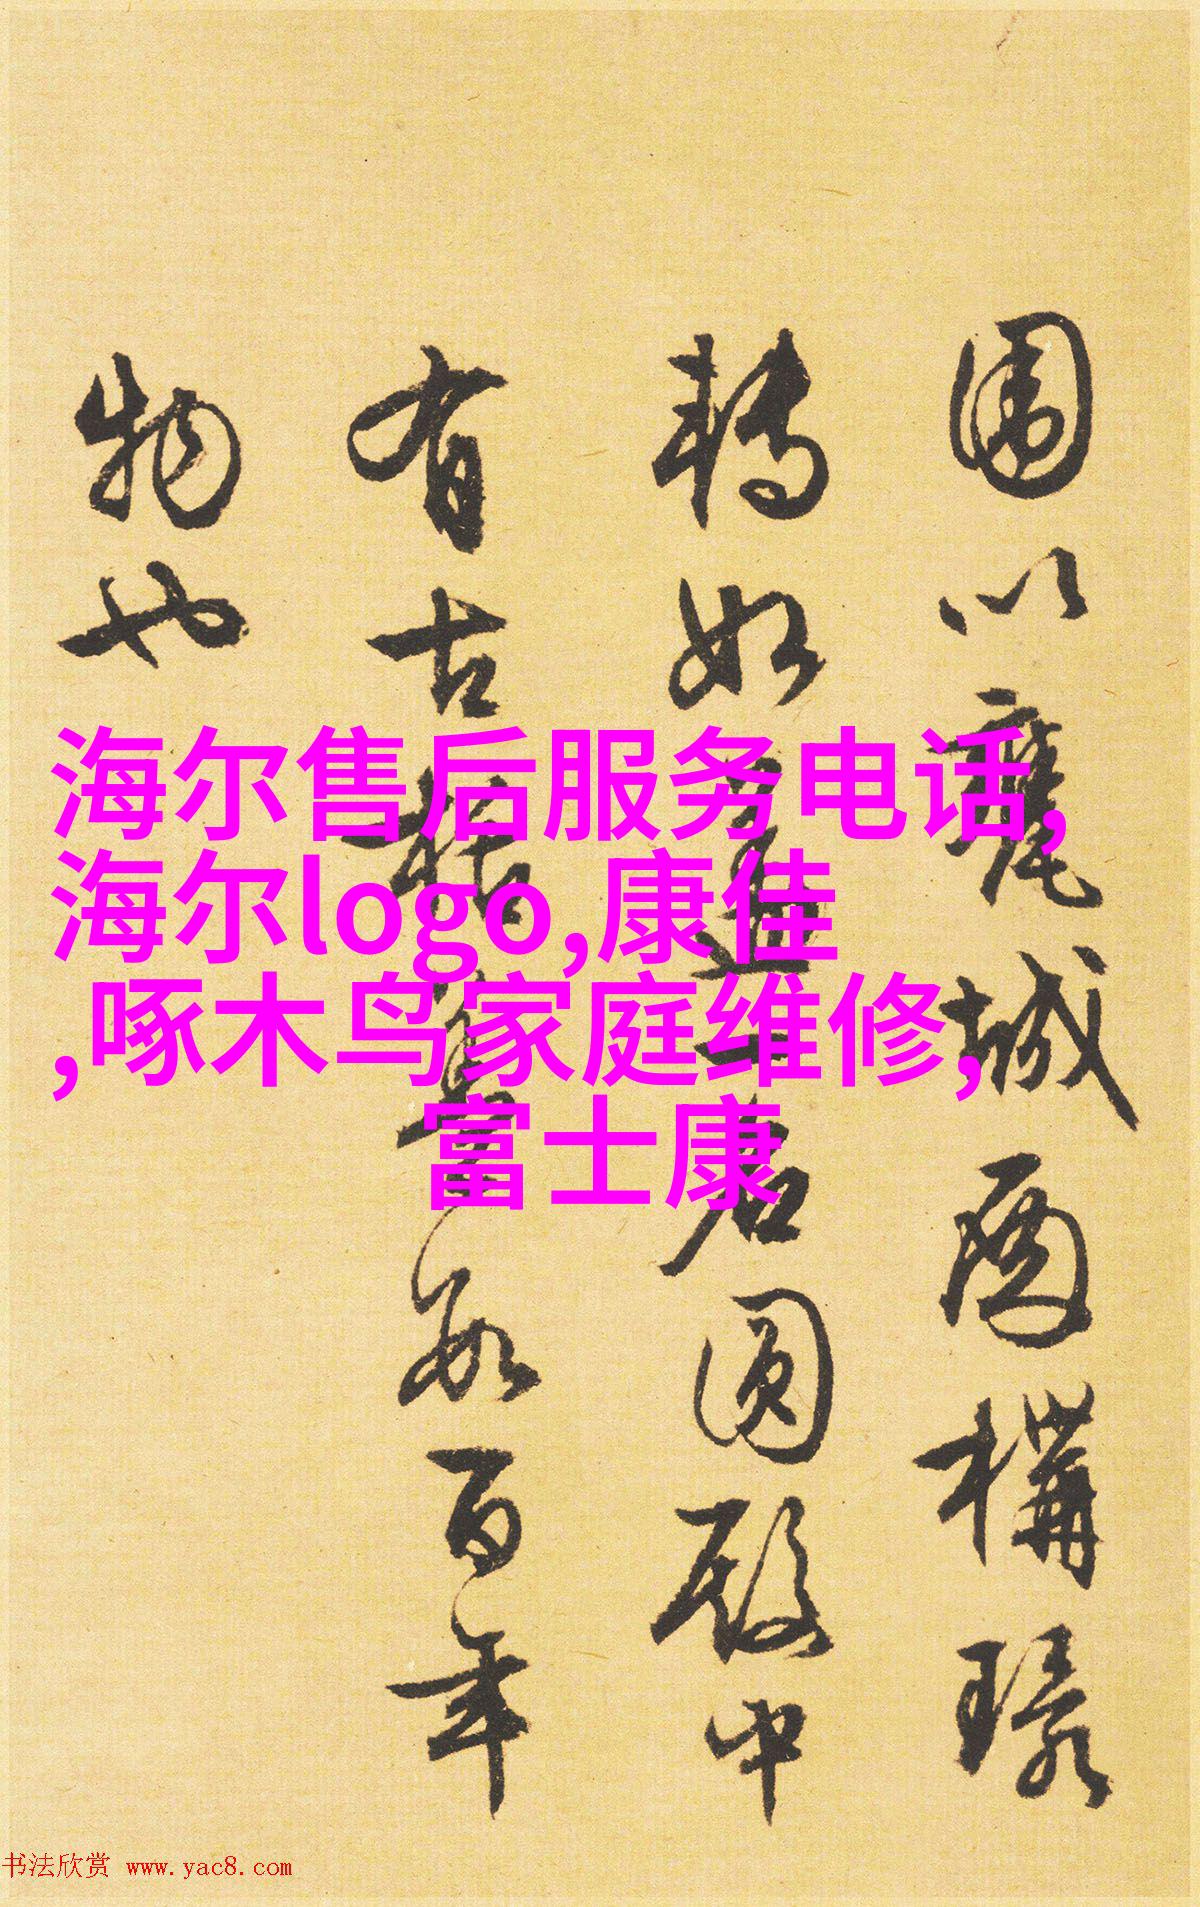 围以甕城而構環
轉如蓋名圓殿中
有古栝數百年
物也
海尔售后服务电话,
海尔logo,康佳
,啄木鸟家庭维修,
富士康
书法欣赏 www.yac8.com